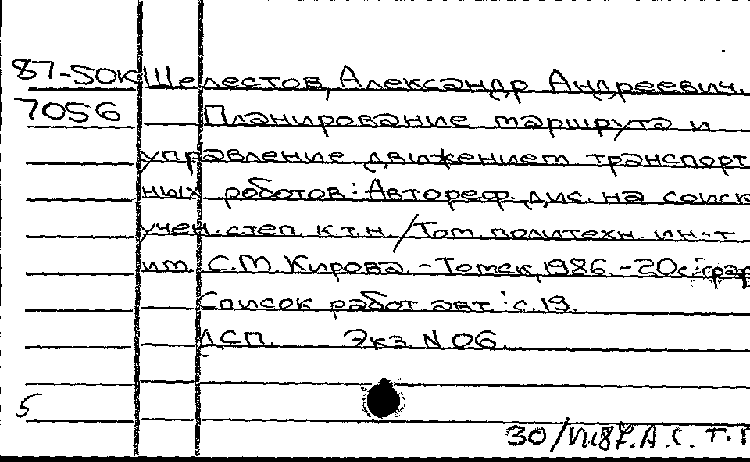 87-50К Шелестов, Александр Андреевич.
7056 Планирование маршрута и
управление движением транспорт
ных роботов: Автореф. дис. на соиск
учен. степ. к.т.н. / Том. политехн. ин-т
им. С.М. Кирова. - Томск, 1986. - 20с.: граф
Список работ авт.: с.19.
ДСП. Экз. N 06.
5
30/VII87. А.С.